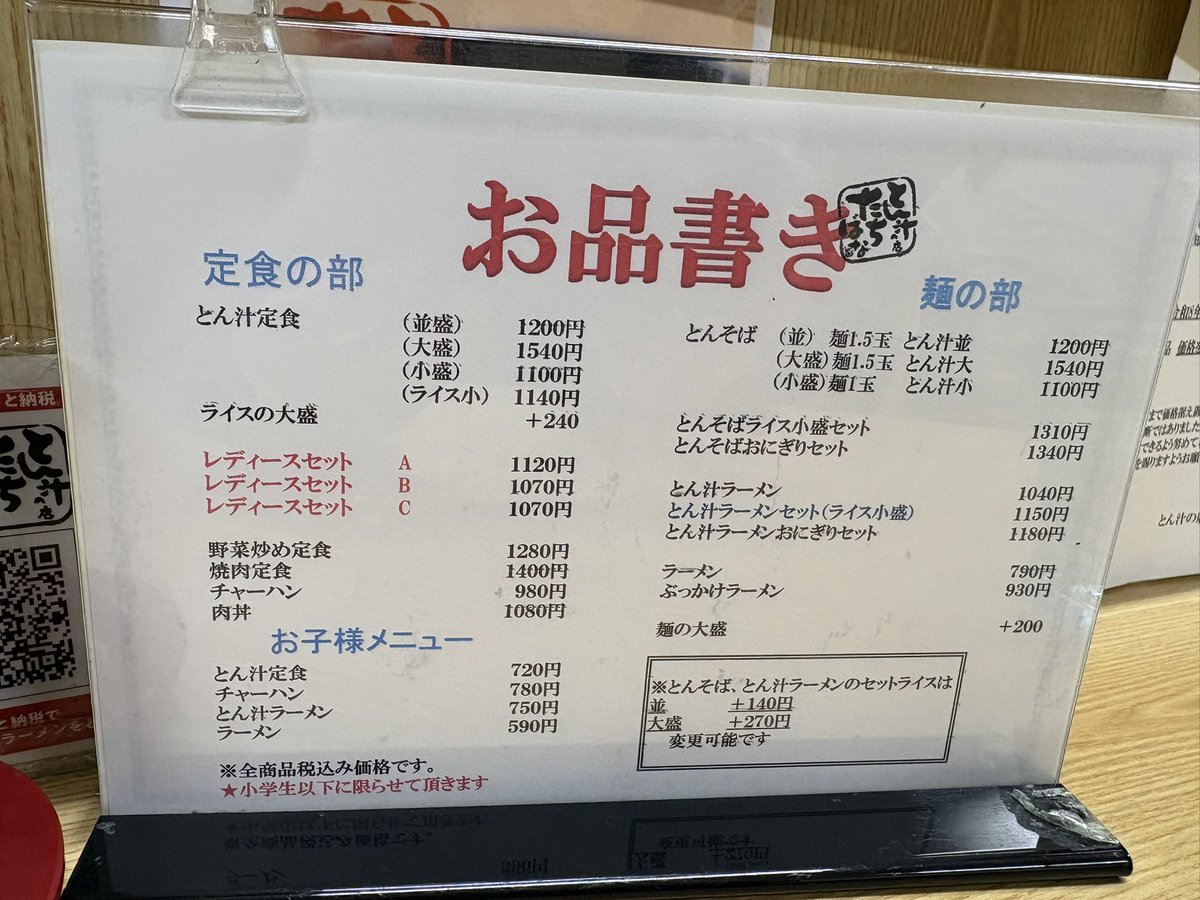 お品書き
とん汁の店
たちばな
定食の部
とん汁定食 (並盛) 1200円
(大盛) 1540円
(小盛) 1100円
(ライス小) 1140円
ライスの大盛 +240
レディースセット A 1120円
レディースセット B 1070円
レディースセット C 1070円
野菜炒め定食 1280円
焼肉定食 1400円
チャーハン 980円
肉丼 1080円
お子様メニュー
とん汁定食 720円
チャーハン 780円
とん汁ラーメン 750円
ラーメン 590円
※全商品税込み価格です。
★小学生以下に限らせて頂きます
麺の部
とんそば (並) 麺1.5玉 とん汁並 1200円
(大盛) 麺1.5玉 とん汁大 1540円
(小盛) 麺1玉 とん汁小 1100円
とんそばライス小盛セット 1310円
とんそばおにぎりセット 1340円
とん汁ラーメン 1040円
とん汁ラーメンセット(ライス小盛) 1150円
とん汁ラーメンおにぎりセット 1180円
ラーメン 790円
ぶっかけラーメン 930円
麺の大盛 +200
※とんそば、とん汁ラーメンのセットライスは
並 +140円
大盛 +270円
変更可能です
と納税
とん汁の店
たち
と納税で
ラーメンを
令和8年
品 価格
まで価格据え
ではありました
できるよう努めて
を賜りますようお願
とん汁の